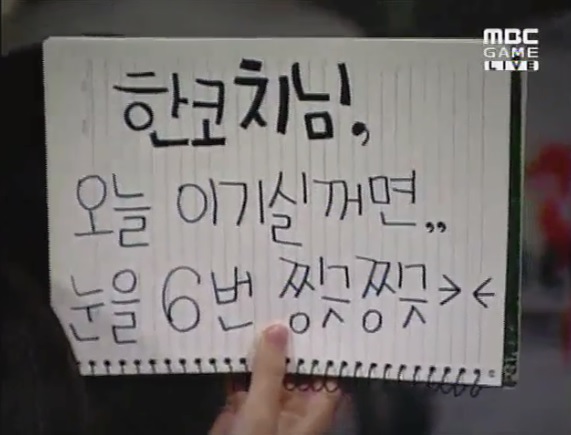 MBC
GAME
LIVE
한코치님,
오늘 이기실꺼면,,
눈을 6번 찡긋찡긋><